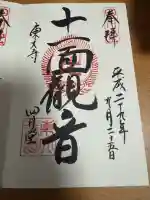 奉拝
平成二十九年
月二十五日
十一面觀音
東大寺
四月堂
奉拝